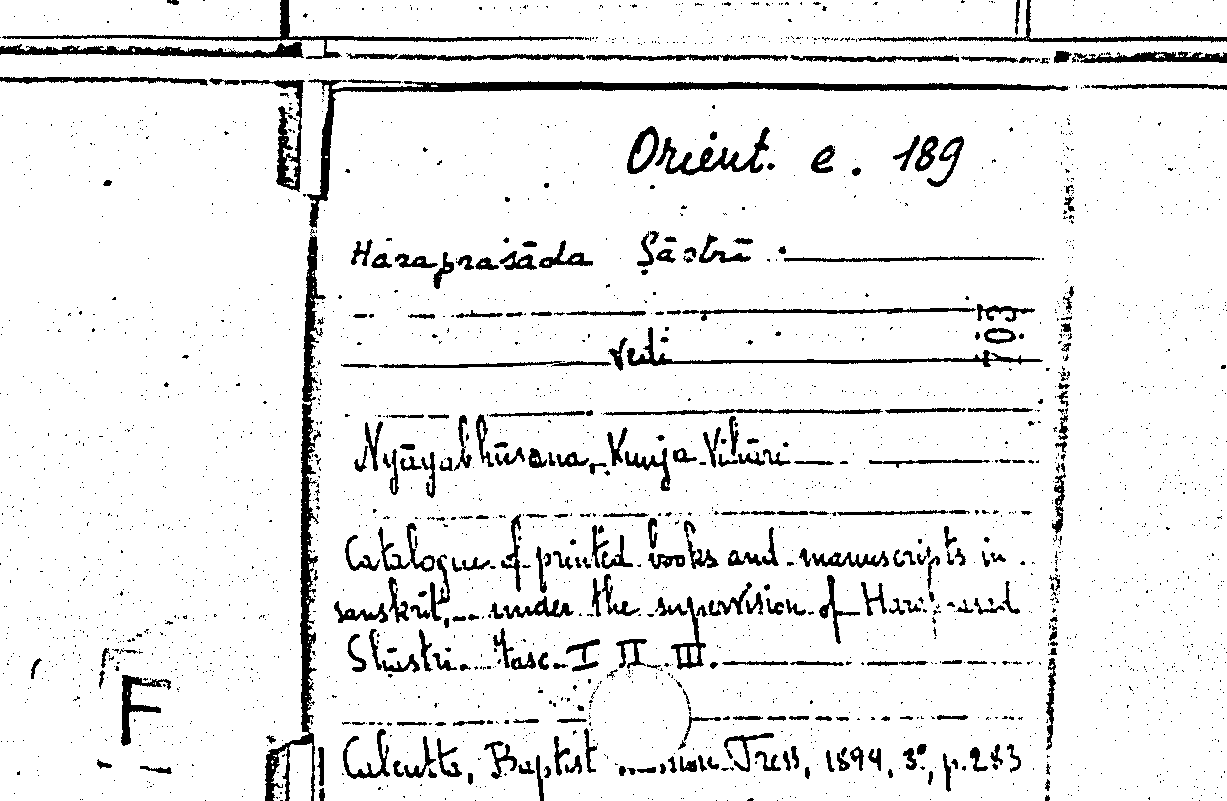 Orient. e. 189
Haraprasāda Ṣāstrī
703
vedi
Nyāyabhūsana, Kunja Vihāri
Catalogue of printed books and manuscripts in
sanskrit, under the supervision of
Shāstri. Fasc. I II III.
F
Calcutta, Baptist Press, 1894, 3°, p. 283